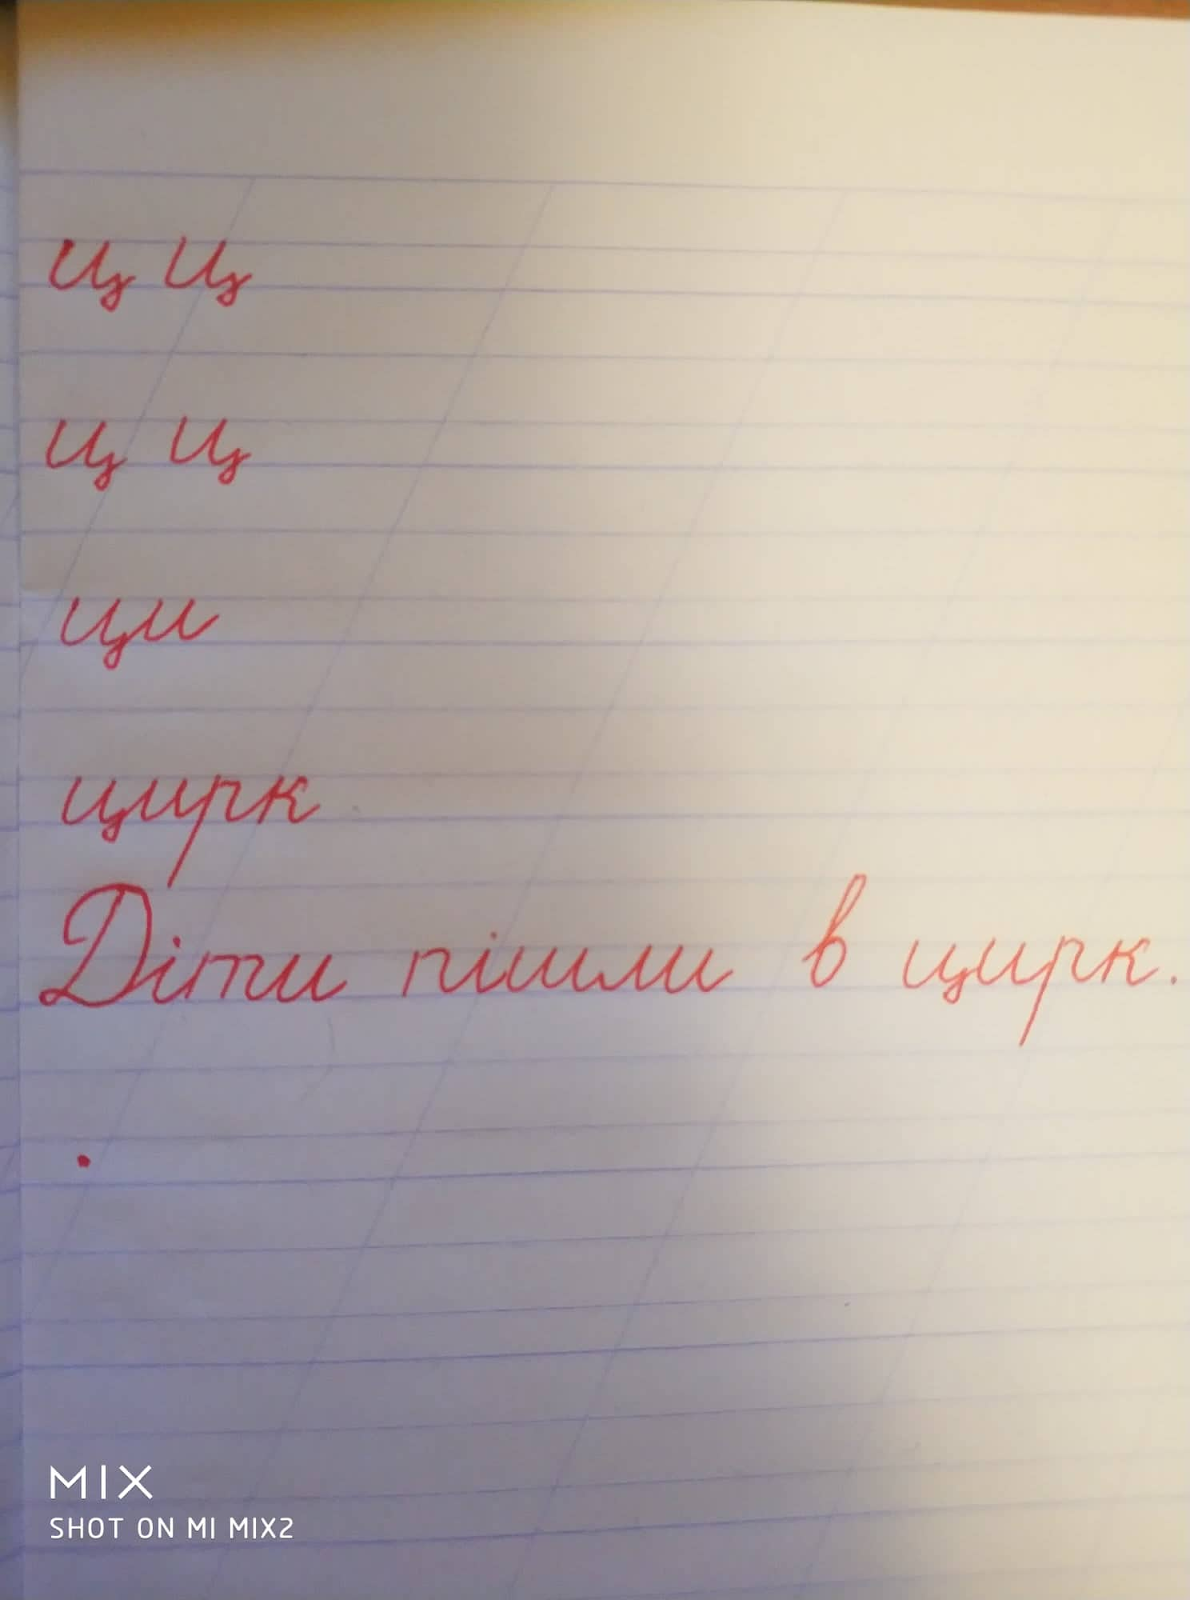 ц ц
ц ц
ци
цирк
Діти пішли в цирк.
.
MIX
SHOT ON MI MIX2